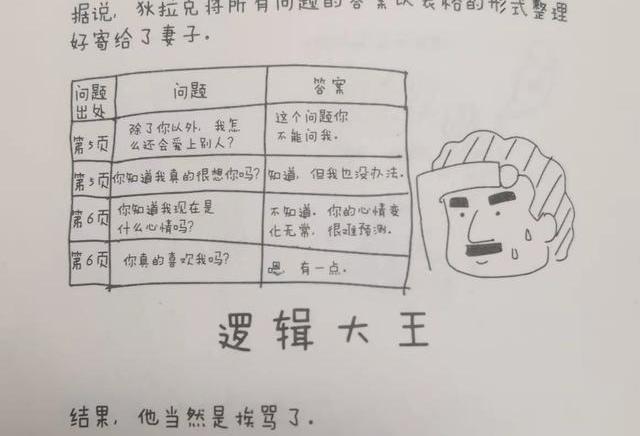 据说，狄拉克将所有问题的答案以表格的形式整理
好寄给了妻子.
问题出处 问题 答案
第5页 除了你以外，我怎么还会爱上别人? 这个问题你不能问我.
第5页 你知道我真的很想你吗? 知道，但我也没办法.
第6页 你知道我现在是什么心情吗? 不知道. 你的心情变化无常，很难预测.
第6页 你真的喜欢我吗? 嗯 有一点.
逻辑大王
结果，他当然是挨骂了.